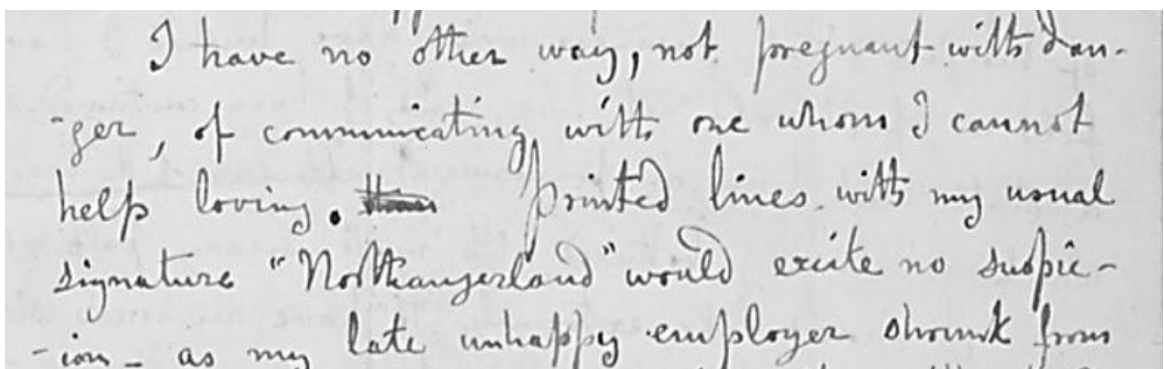 I have no other way, not pregnant with dan-
-ger, of communicating with one whom I cannot
help loving. Printed lines with my usual
signature "Northangerland" would excite no suspic-
-ion - as my late unhappy employer shrunk from